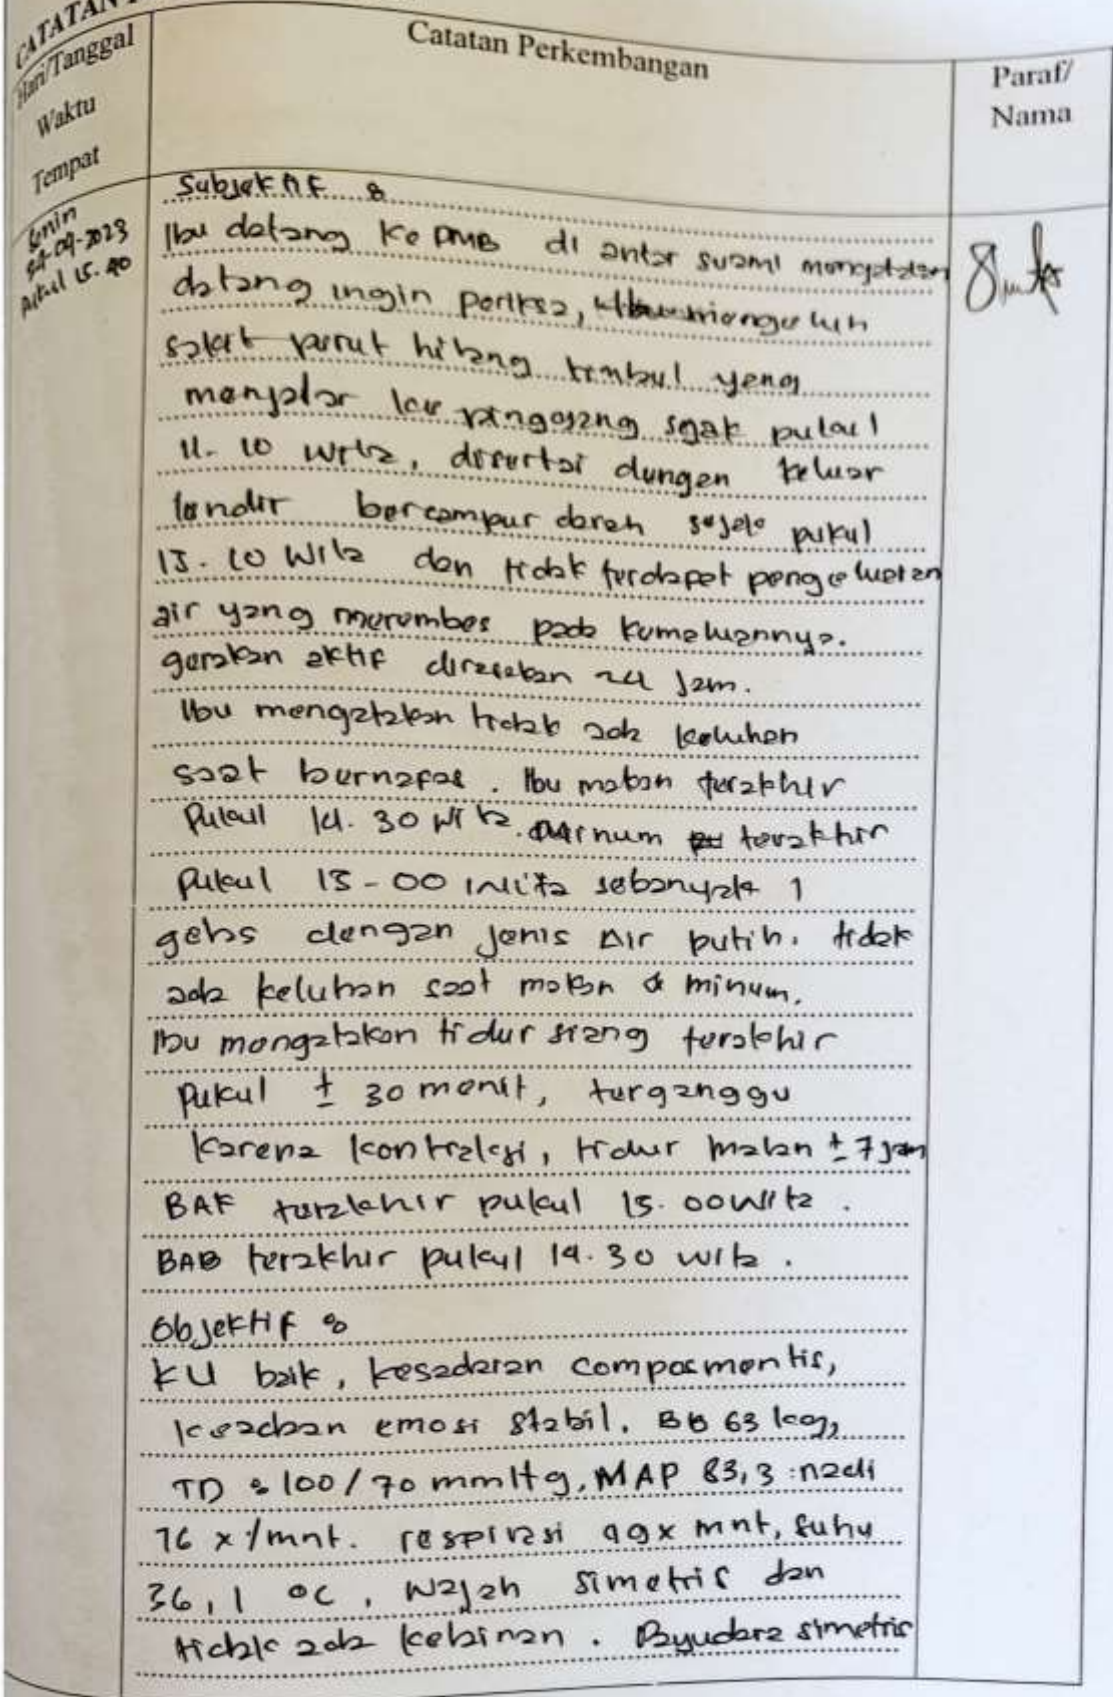 CATATAN
Hari/Tanggal
Waktu
Tempat
Catatan Perkembangan
Paraf/
Nama
Senin
-09-2023
Pukul 15.40
Subjektif :
Ibu datang ke PMB di antar suami mengatakan
datang ingin periksa, mengeluh
sakit perut hilang timbul yang
menjalar ke pinggang sejak pukul
11.10 wita, disertai dengan keluar
lendir bercampur darah sejak pukul
15.10 wita dan tidak terdapat pengeluaran
air yang merembes pada kemaluannya.
gerakan aktif dirasakan 24 jam.
Ibu mengatakan tidak ada keluhan
saat bernafas. Ibu makan terakhir
Pukul 14.30 wita. minum terakhir
Pukul 15-00 wita sebanyak 1
gelas dengan jenis Air putih. tidak
ada keluhan saat makan & minum.
Ibu mengatakan tidur siang terakhir
pukul ± 30 menit, terganggu
karena kontraksi, tidur malan ± 7 jam
BAK terakhir pukul 15.00 wita.
BAB terakhir pukul 14.30 wita.
Objektif :
KU baik, kesadaran composmentis,
keadaan emosi stabil. BB 63 kg,
TD : 100/70 mmHg, MAP 83,3 : nadi
76 x/mnt. respirasi x mnt, suhu
36,1 °C, wajah simetris dan
tidak ada kelainan. Payudara simetris